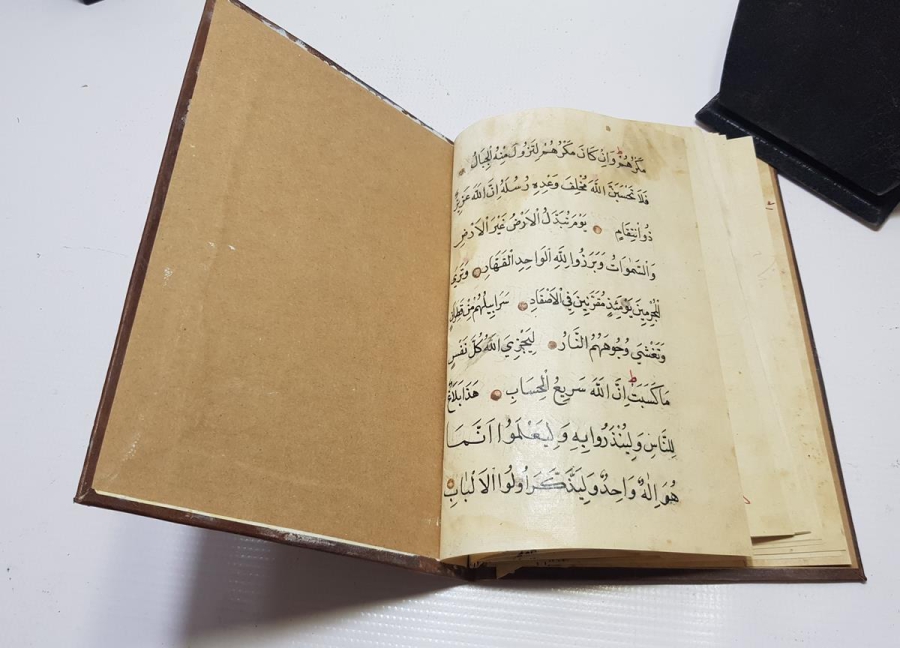 مَكْرُهُمْ وَاِنْ كَانَ مَكْرُهُمْ لِتَزُولَ مِنْهُ الْجِبَالُ
فَلَا تَحْسَبَنَّ اللّٰهَ مُخْلِفَ وَعْدِهِ رُسُلَهُ اِنَّ اللّٰهَ عَزِيزٌ
ذُو انْتِقَامٍ يَوْمَ تُبَدَّلُ الْاَرْضُ غَيْرَ الْاَرْضِ
وَالسَّمٰوَاتُ وَبَرَزُوا لِلّٰهِ الْوَاحِدِ الْقَهَّارِ وَتَرَى
الْمُجْرِمِينَ يَوْمَئِذٍ مُقَرَّنِينَ فِي الْاَصْفَادِ سَرَابِيلُهُمْ مِنْ قَطِرَانٍ
وَتَغْشَى وُجُوهَهُمُ النَّارُ لِيَجْزِيَ اللّٰهُ كُلَّ نَفْسٍ
مَا كَسَبَتْ اِنَّ اللّٰهَ سَرِيعُ الْحِسَابِ هٰذَا بَلَاغٌ
لِلنَّاسِ وَلِيُنْذَرُوا بِهِ وَلِيَعْلَمُوا اَنَّمَا
هُوَ اِلٰهٌ وَاحِدٌ وَلِيَذَّكَّرَ اُولُوا الْاَلْبَابِ